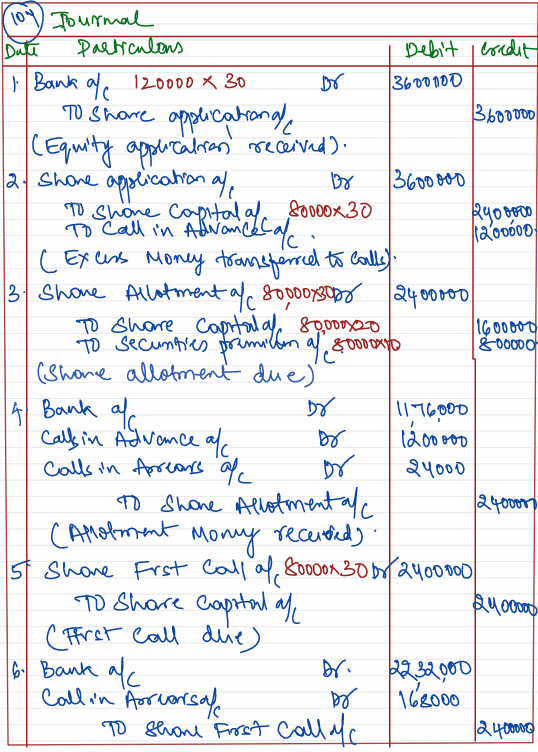 104 Journal
Date Particulars Debit Credit
1. Bank a/c 120000 x 30 Dr 3600000
To Share application a/c 3600000
(Equity application received).
2. Share application a/c Dr 3600000
To Share Capital a/c 80000x30 2400000
To Call in Advance a/c. 1200000.
(Excess Money transferred to calls).
3. Share Allotment a/c 80,000x30 Dr 2400000
To Share Capital a/c 80,000x20 1600000
To Securities premium a/c 80000x10 800000
(Share allotment due)
4. Bank a/c Dr 1176,000
Calls in Advance a/c Dr 1200000
Calls in Arrears a/c Dr 24000
To Share Allotment a/c 2400000
(Allotment Money received).
5. Share First Call a/c 80000x30 Dr 2400000
To Share Capital a/c 2400000
(First call due)
6. Bank a/c Dr. 2232,000
Call in Arrears a/c Dr 168000
To Share First Call a/c 240000